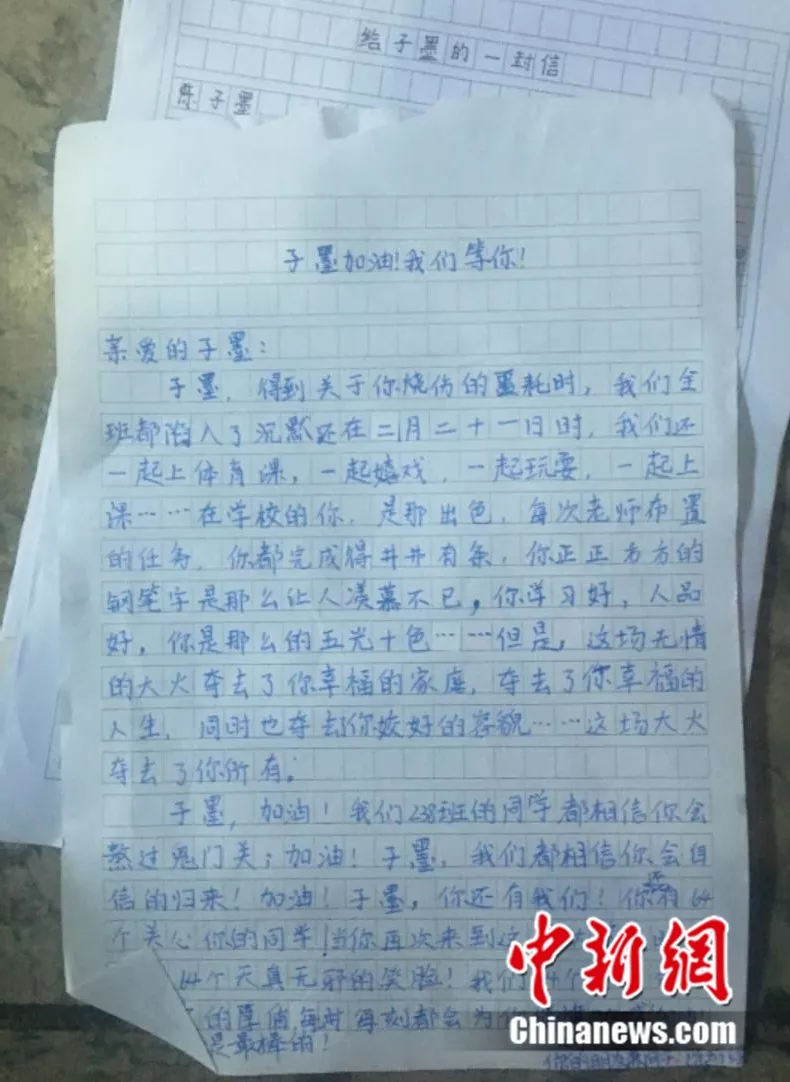 给子墨的一封信
子墨
子墨加油!我们等你!
亲爱的子墨:
子墨,得到关于你烧伤的噩耗时,我们全
班都陷入了沉默还在二月二十一日时,我们还
一起上体育课,一起嬉戏,一起玩耍,一起上
课……在学校的你,是那出色,每次老师布置
的任务,你都完成得井井有条,你正正方方的
钢笔字是那么让人羡慕不已,你学习好,人品
好,你是那么的五光十色……但是,这场无情
的大火夺去了你幸福的家庭,夺去了你幸福的
人生,同时也夺去你姣好的容貌……这场大火
夺去了你所有。
子墨,加油!我们238班的同学都相信你会
熬过鬼门关;加油!子墨,我们都相信你会自
信的归来!加油!子墨,你还有我们!你还有64
个关心你的同学!当你再次来到这
64个天真无邪的笑脸!我们
的 每时每刻都会为你
是最棒的!
中新網
Chinanews.com